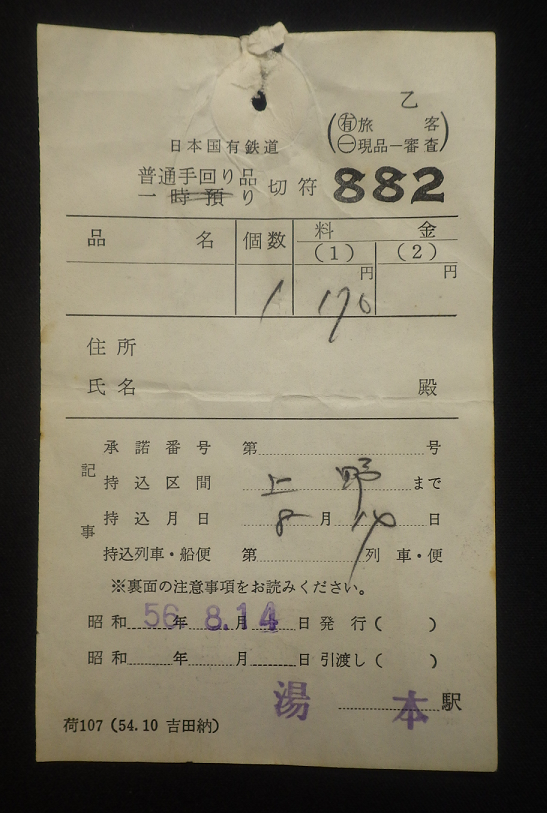 乙
日本国有鉄道
(㊒旅客
㊀現品一審査)
普通手回り品
一時預り
切符 882
品名 個数 料金
(1) (2)
円 円
1 170
住所
氏名 殿
記事
承諾番号 第 号
持込区間 上野 まで
持込月日 8月14日
持込列車・船便 第 列車・便
※裏面の注意事項をお読みください。
昭和56年8.月14日発行( )
昭和 年 月 日引渡し( )
湯本駅
荷107 (54.10 吉田納)